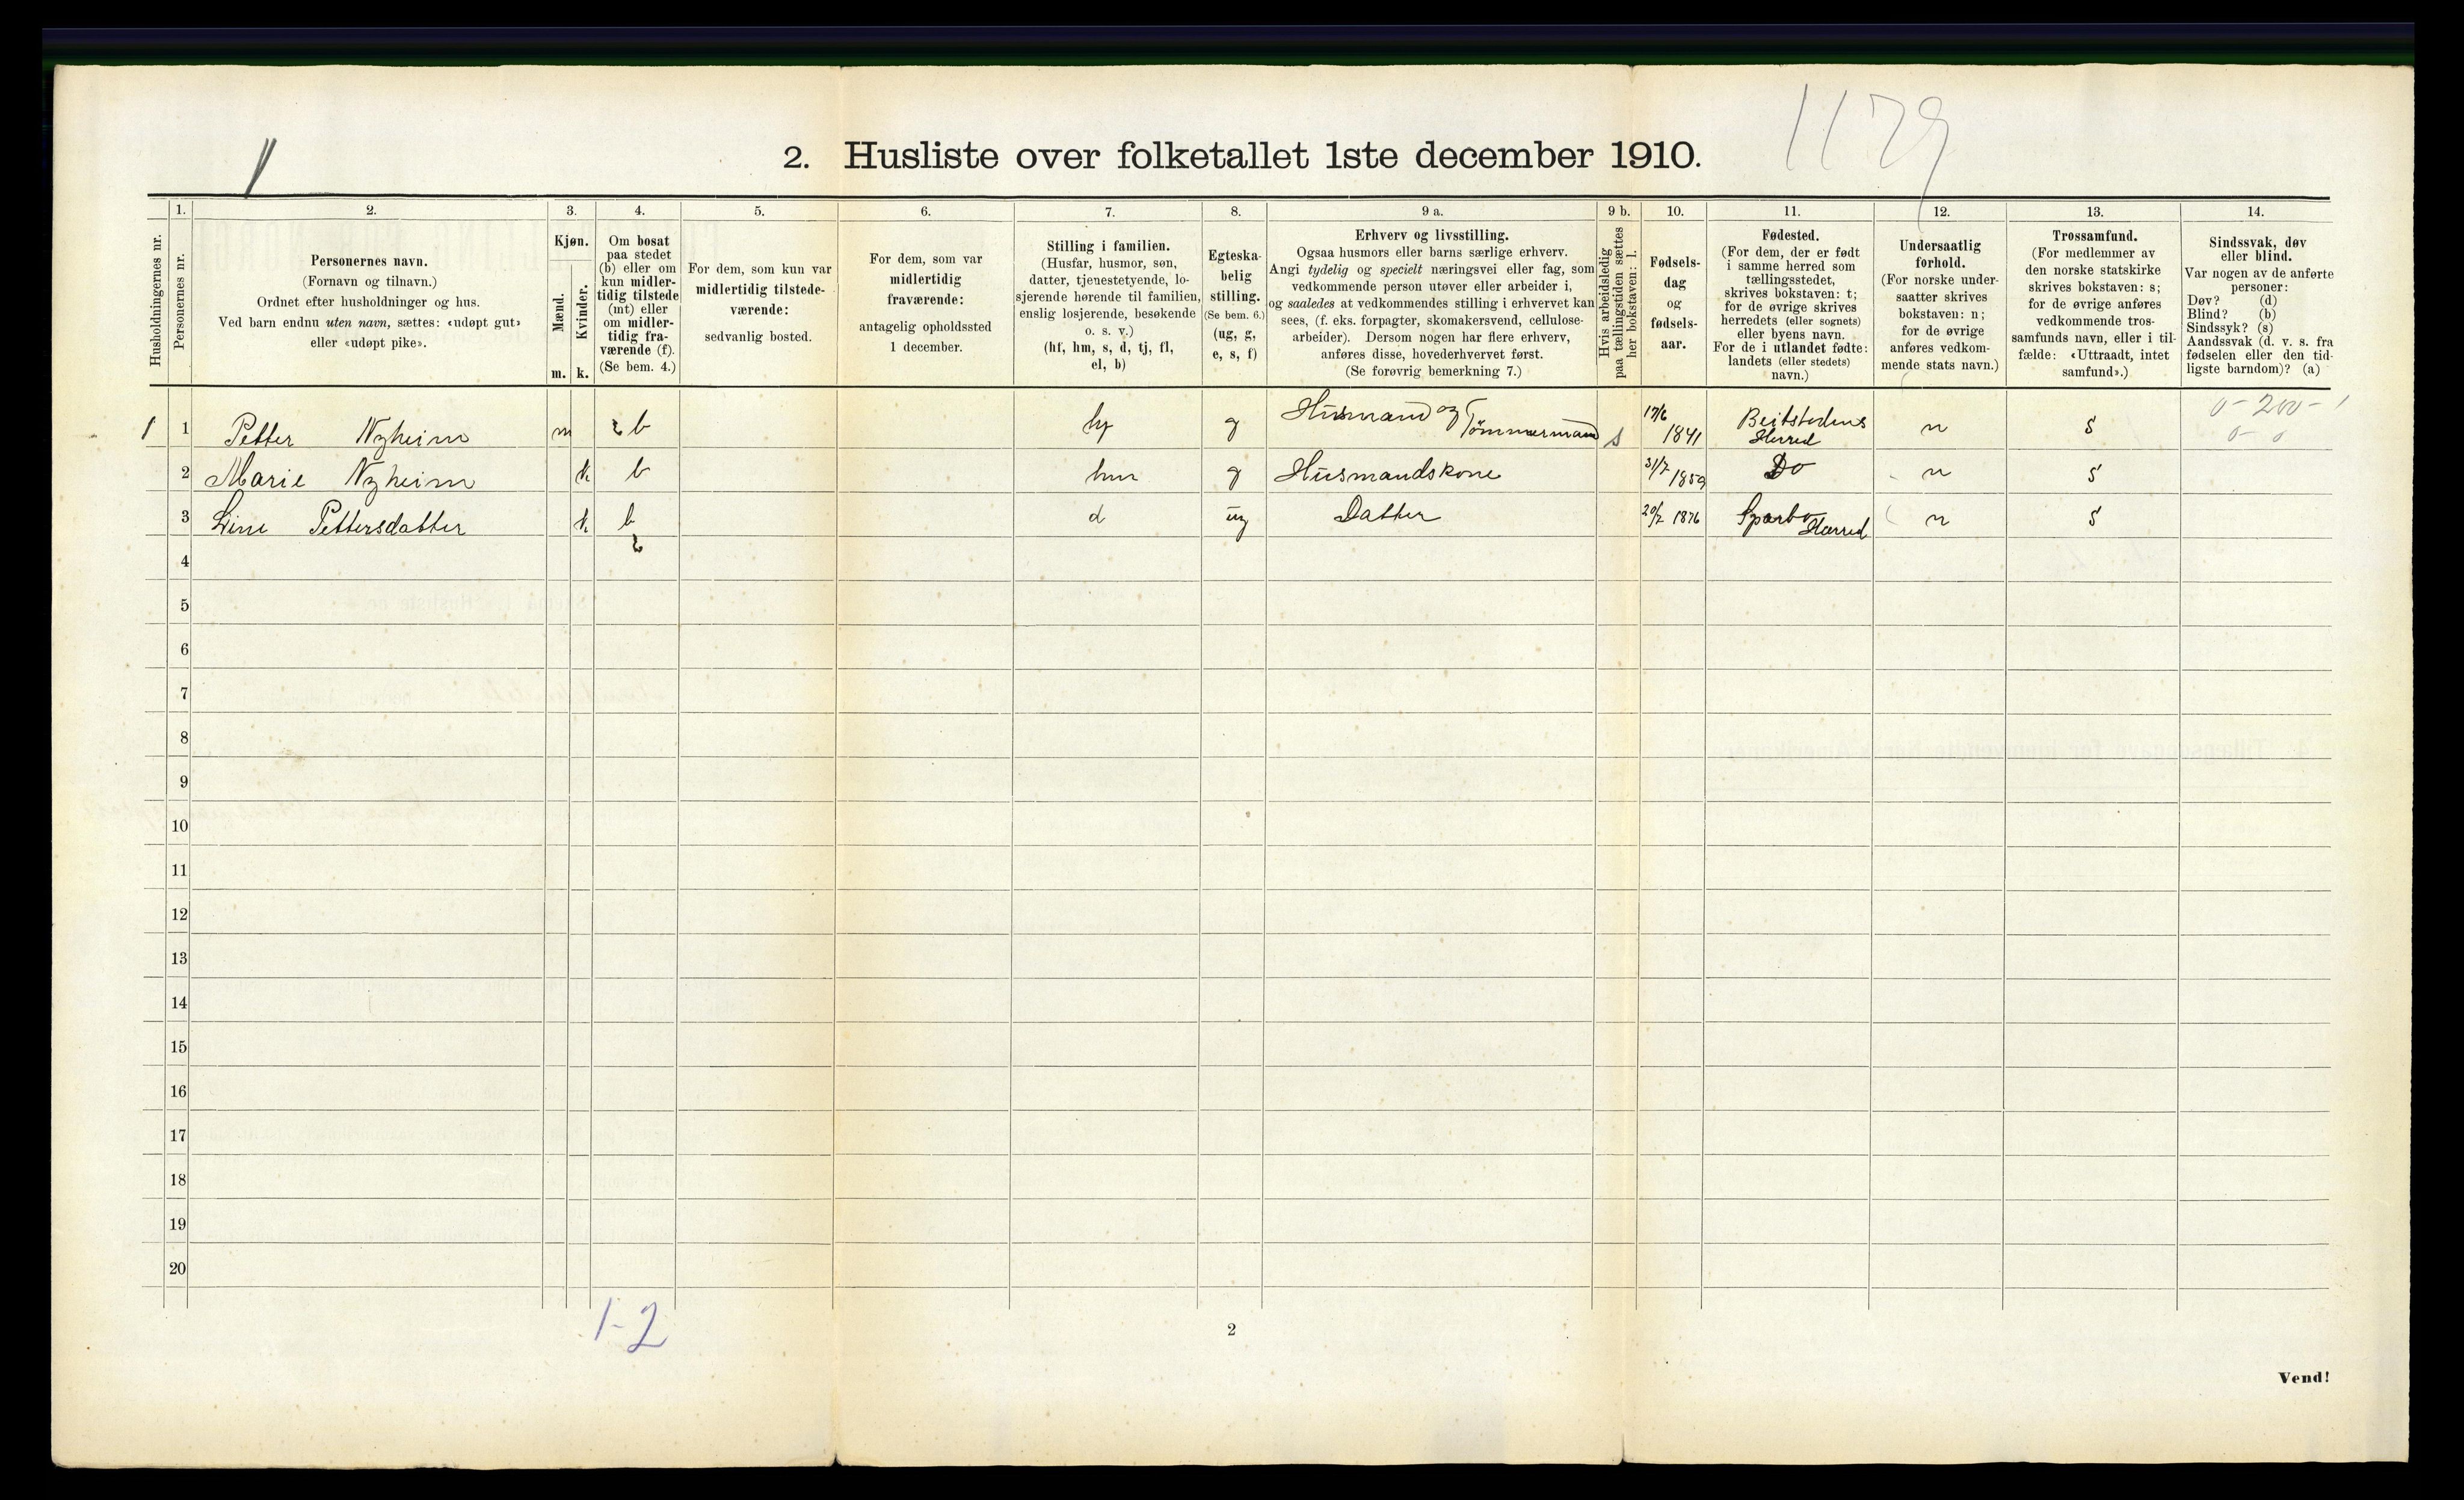 1179
2. Husliste over folketallet 1ste december 1910.
Husholdningernes nr.
1.
Personernes nr.
2.
Personernes navn.
(Fornavn og tilnavn.)
Ordnet efter husholdninger og hus.
Ved barn endnu uten navn, sættes: «udøpt gut»
eller «udøpt pike».
3.
Kjøn.
Mænd.
Kvinder.
m. k.
4.
Om bosat
paa stedet
(b) eller om
kun midler-
tidig tilstede
(mt) eller
om midler-
tidig fra-
værende (f).
(Se bem. 4.)
5.
For dem, som kun var
midlertidig tilstede-
værende:
sedvanlig bosted.
6.
For dem, som var
midlertidig
fraværende:
antagelig opholdssted
1 december.
7.
Stilling i familien.
(Husfar, husmor, søn,
datter, tjenestetyende, lo-
sjerende hørende til familien,
enslig losjerende, besøkende
o. s. v.)
(hf, hm, s, d, tj, fl,
el, b)
8.
Egteska-
belig
stilling.
(Se bem. 6.)
(ug, g,
e, s, f)
9 a.
Erhverv og livsstilling.
Ogsaa husmors eller barns særlige erhverv.
Angi tydelig og specielt næringsvei eller fag, som
vedkommende person utøver eller arbeider i,
og saaledes at vedkommendes stilling i erhvervet kan
sees, (f. eks. forpagter, skomakersvend, cellulose-
arbeider). Dersom nogen har flere erhverv,
anføres disse, hovederhvervet først.
(Se forøvrig bemerkning 7.)
9 b.
Hvis arbeidsledig
paa tællingstiden sættes
her bokstaven: l.
10.
Fødsels-
dag
og
fødsels-
aar.
11.
Fødested.
(For dem, der er født
i samme herred som
tællingsstedet,
skrives bokstaven: t;
for de øvrige skrives
herredets (eller sognets)
eller byens navn.
For de i utlandet fødte:
landets (eller stedets)
navn.)
12.
Undersaatlig
forhold.
(For norske under-
saatter skrives
bokstaven: n;
for de øvrige
anføres vedkom-
mende stats navn.)
13.
Trossamfund.
(For medlemmer av
den norske statskirke
skrives bokstaven: s;
for de øvrige anføres
vedkommende tros-
samfunds navn, eller i til-
fælde: «Uttraadt, intet
samfund».)
14.
Sindssvak, døv
eller blind.
Var nogen av de anførte
personer:
Døv? (d)
Blind? (b)
Sindssyk? (s)
Aandssvak (d. v. s. fra
fødselen eller den tid-
ligste barndom)? (a)
1 1 Petter Nyheim m b hf g Husmand og Tømmermand s 17/6 1841 Beitstedens Herred n s 0-200-1
0-0
2 Marie Nyheim k b hm g Husmandskone 31/7 1859 Do n s
3 Line Pettersdatter k b d ug Datter 20/2 1876 Sparbo Herred n s
4
5
6
7
8
9
10
11
12
13
14
15
16
17
18
19
20
1-2
2
Vend!